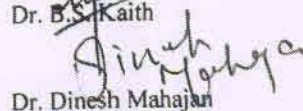 Dr. B.S. Kaith
Dinesh
Mahajan
Dr. Dinesh Mahajan